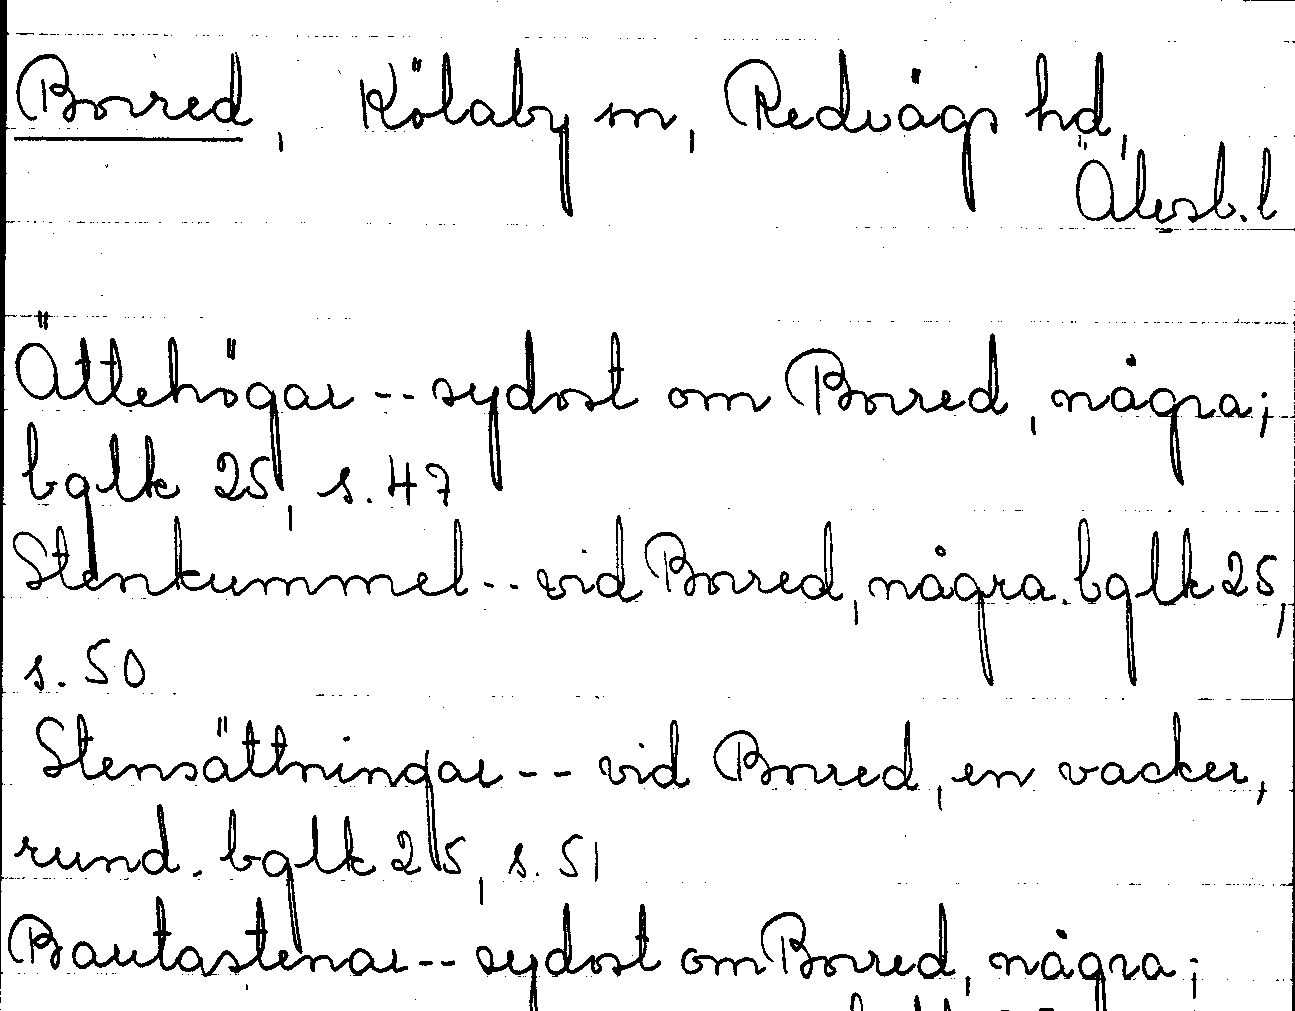 Borred, Kölaby sn, Redvägs hd,
Älvsb. l
Ättehögar -- sydost om Borred, några;
bglk 25, s. 47
Stenkummel -- vid Borred, några. bglk 25,
s. 50
Stensättningar -- vid Borred, en vacker,
rund. bglk 25, s. 51
Bautastenar -- sydost om Borred, några;